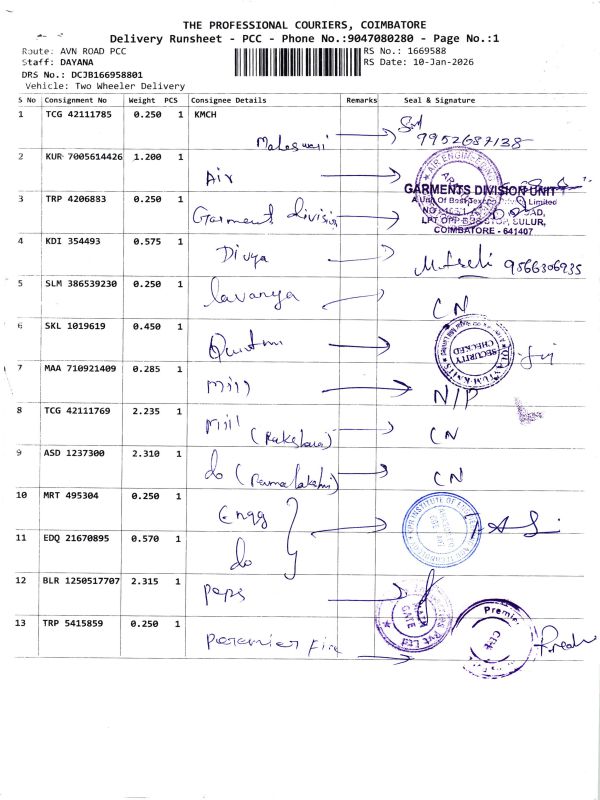 THE PROFESSIONAL COURIERS, COIMBATORE
Delivery Runsheet - PCC - Phone No.:9047080280 - Page No.:1
Route: AVN ROAD PCC
RS No.: 1669588
Staff: DAYANA
RS Date: 10-Jan-2026
DRS No.: DCJB166958801
Vehicle: Two Wheeler Delivery
S No Consignment No Weight PCS Consignee Details Remarks Seal & Signature
1 TCG 42111785 0.250 1 KMCH
9952687138
2 KUR 7005614426 1.200 1 Air
AIR ENGINEERING
3 TRP 4206883 0.250 1 Garment division
GARMENTS DIVISION UNIT
A Unit Of Limited
SULUR,
COIMBATORE - 641407
4 KDI 354493 0.575 1 Divya
9566306935
5 SLM 386539230 0.250 1 lavanya CN
6 SKL 1019619 0.450 1
SECURITY
CHECKED
7 MAA 710921409 0.285 1 mill N/P
8 TCG 42111769 2.235 1 mill CN
9 ASD 1237300 2.310 1 do CN
10 MRT 495304 0.250 1 Engg
11 EDQ 21670895 0.570 1 do
12 BLR 1250517707 2.315 1 Paps
MAIN
GATE
Pvt Ltd
13 TRP 5415859 0.250 1 Peremier Fire
Premier